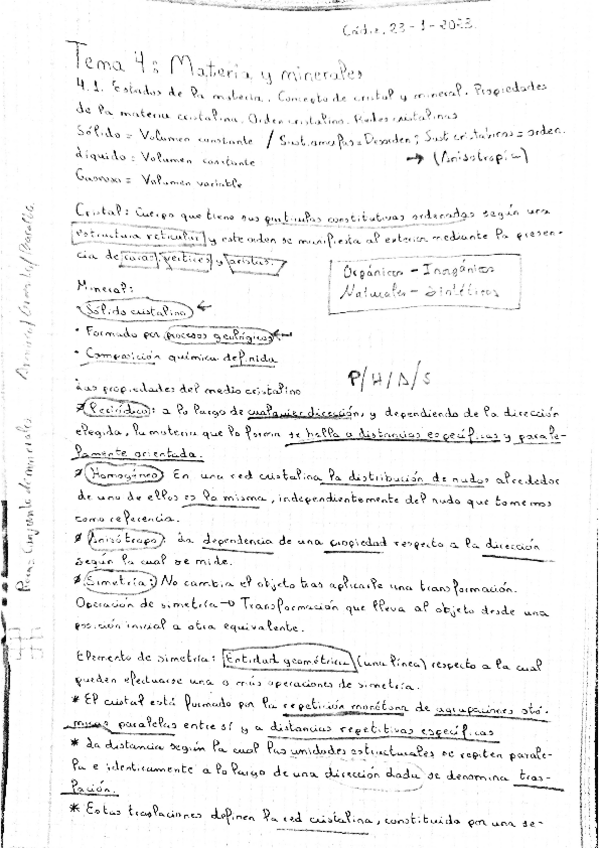 Cádiz, 23-1-2023
Tema 4: Materia y minerales
4.1. Estados de la materia. Concepto de cristal y mineral. Propiedades
de la materia cristalina. Orden cristalino. Redes cristalinas
Sólido = Volumen constante / Sust. amorfas = Desorden; Sust cristalinas = orden.
Líquido = Volumen constante → (Anisotropía)
Gaseoso = Volumen variable
Cristal: Cuerpo que tiene sus partículas constitutivas ordenadas según una
estructura reticular y este orden se manifiesta al exterior mediante la presen-
cia de caras, vértices y aristas.
Orgánicos - Inorgánicos
Naturales - Sintéticos
Mineral:
• Sólido cristalino ←
• Formado por procesos geológicos ←
• Composición química definida
P/H/A/S
Las propiedades del medio cristalino
* Periódico: a lo largo de cualquier dirección, y dependiendo de la dirección
elegida, la materia que lo forma se halla a distancias específicas y parale-
lamente orientada.
* Homogéneo: En una red cristalina la distribución de nudos alrededor
de uno de ellos es la misma, independientemente del nudo que tomemos
como referencia.
* Anisótropo: La dependencia de una propiedad respecto a la dirección
según la cual se mide.
* Simetría: No cambia el objeto tras aplicarle una transformación.
Operación de simetría → Transformación que lleva al objeto desde una
posición inicial a otra equivalente.
Elemento de simetría: Entidad geométrica (una línea) respecto a la cual
pueden efectuarse una o más operaciones de simetría.
* El cristal está formado por la repetición monótona de agrupaciones ató-
micas paralelas entre sí y a distancias repetitivas específicas
* La distancia según la cual las unidades estructurales se repiten parale-
la e idénticamente a lo largo de una dirección dada se denomina tras-
lación.
* Estas traslaciones definen la red cristalina, constituida por una se-
Roca = Conjunto de minerales